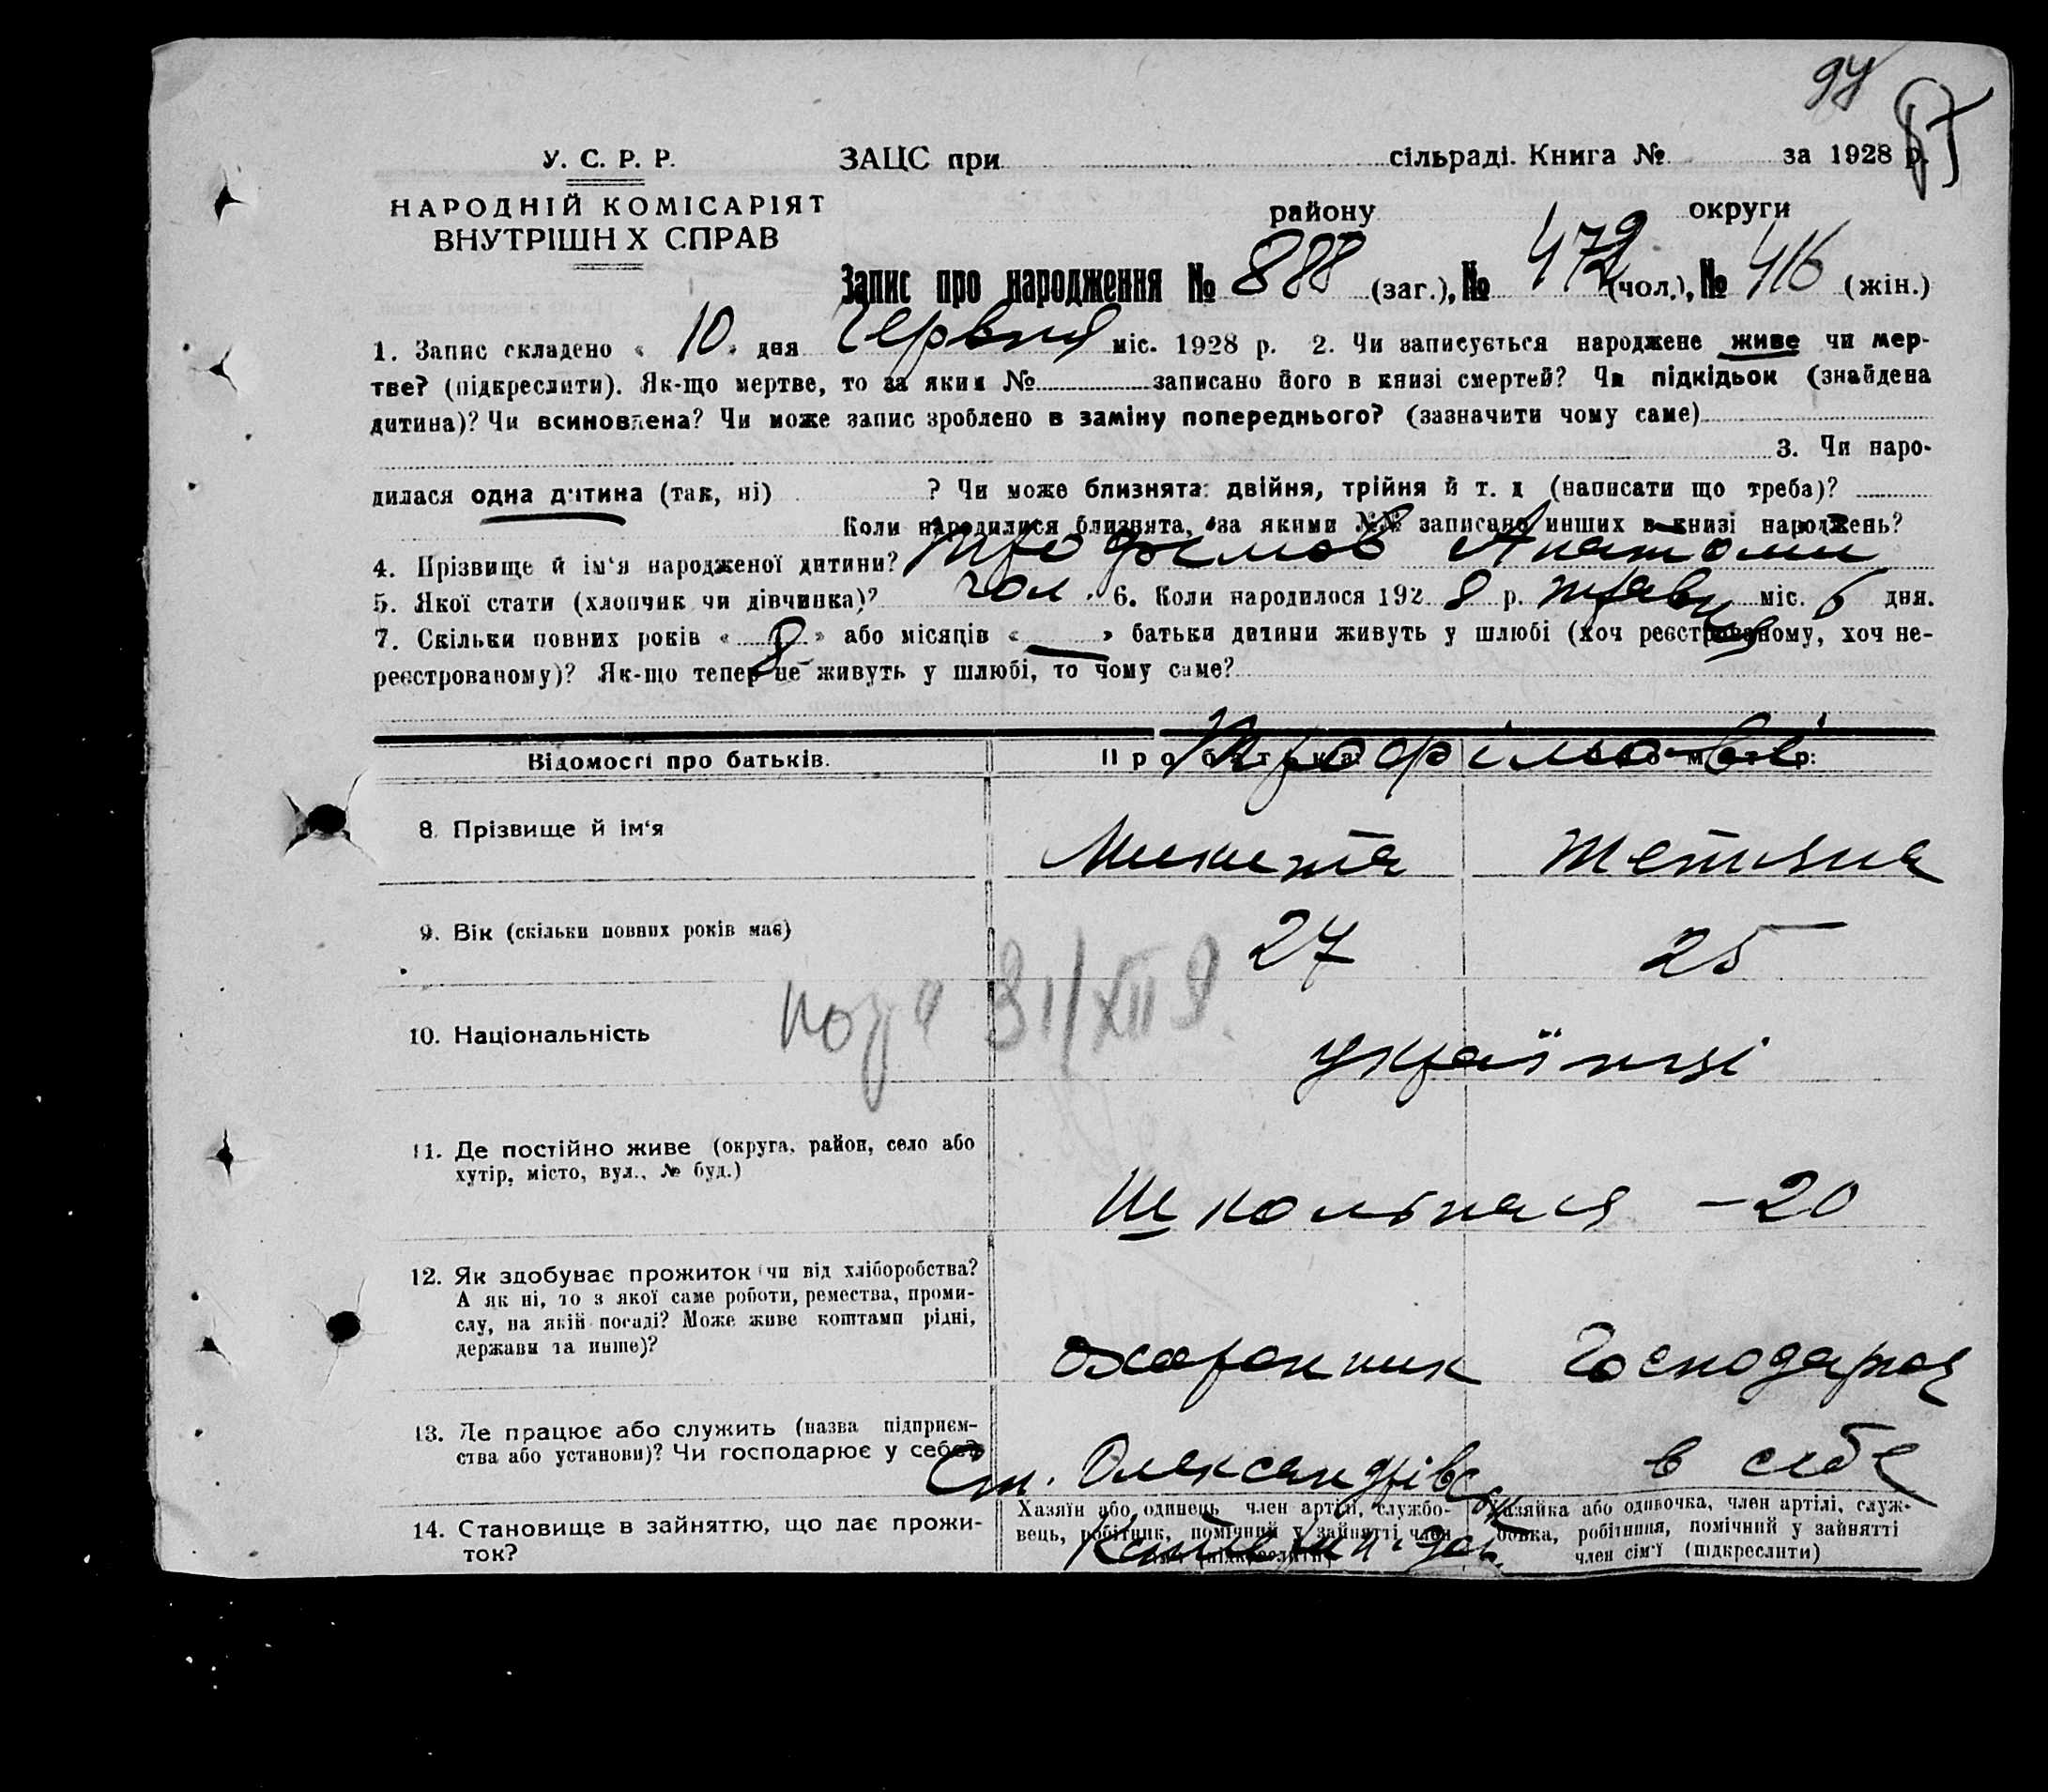 94
У. С. Р. Р. ЗАЦС при сільраді. Книга № за 1928 р.
НАРОДНІЙ КОМІСАРІЯТ
ВНУТРІШН Х СПРАВ
району округи
Запис про народження № 888 (заг.), № 472 (чол.), № 416 (жін.)
1. Запис складено « 10 » дня Червня міс. 1928 р. 2. Чи записується народжене живе чи мер-
тве? (підкреслити). Як-що мертве, то за яким № записано його в книзі смертей? Чи підкідьок (знайдена
дитина)? Чи всиновлена? Чи може запис зроблено в заміну попереднього? (зазначити чому саме)
3. Чи наро-
дилася одна дитина (так, ні) ? Чи може близнята: двійня, трійня й т. д (написати що треба)?
Коли народилися близнята, за якими №№ записано инших в книзі народжень?
4. Прізвище й ім'я народженої дитини? Трофимов Анатолий
5. Якої стати (хлопчик чи дівчинка)? чол. 6. Коли народилося 192 8 р. травня міс. 6 дня.
7. Скільки повних років « 8 » або місяців « — » батьки дитини живуть у шлюбі (хоч реєстрованому, хоч не-
реєстрованому)? Як-що тепер не живуть у шлюбі, то чому саме?
Відомості про батьків. Про батька Про матір:
Трофімови
8. Прізвище й ім'я Микита Тетяна
9. Вік (скільки повних років має) 27 25
31/XII
10. Національність українці
11. Де постійно живе (округа, район, село або
хутір, місто, вул., № буд.)
Шкільная – 20
12. Як здобуває прожиток (чи від хліборобства?
А як ні, то з якої саме роботи, ремества, проми-
слу, на якій посаді? Може живе коштами рідні,
держави та инше)?
охоронник Господарка
13. Де працює або служить (назва підприєм-
ства або установи)? Чи господарює у себе?
Ст. Олександрівськ в себе
14. Становище в зайняттю, що дає прожи-
ток?
Хазяїн або одинець член артілі, службо-
вець, робітник, помічний у зайнятті член
сім'ї (підкреслити)
Хазяйка або одиночка, член артілі, служ-
бовка, робітниця, помічний у зайнятті
член сім'ї (підкреслити)